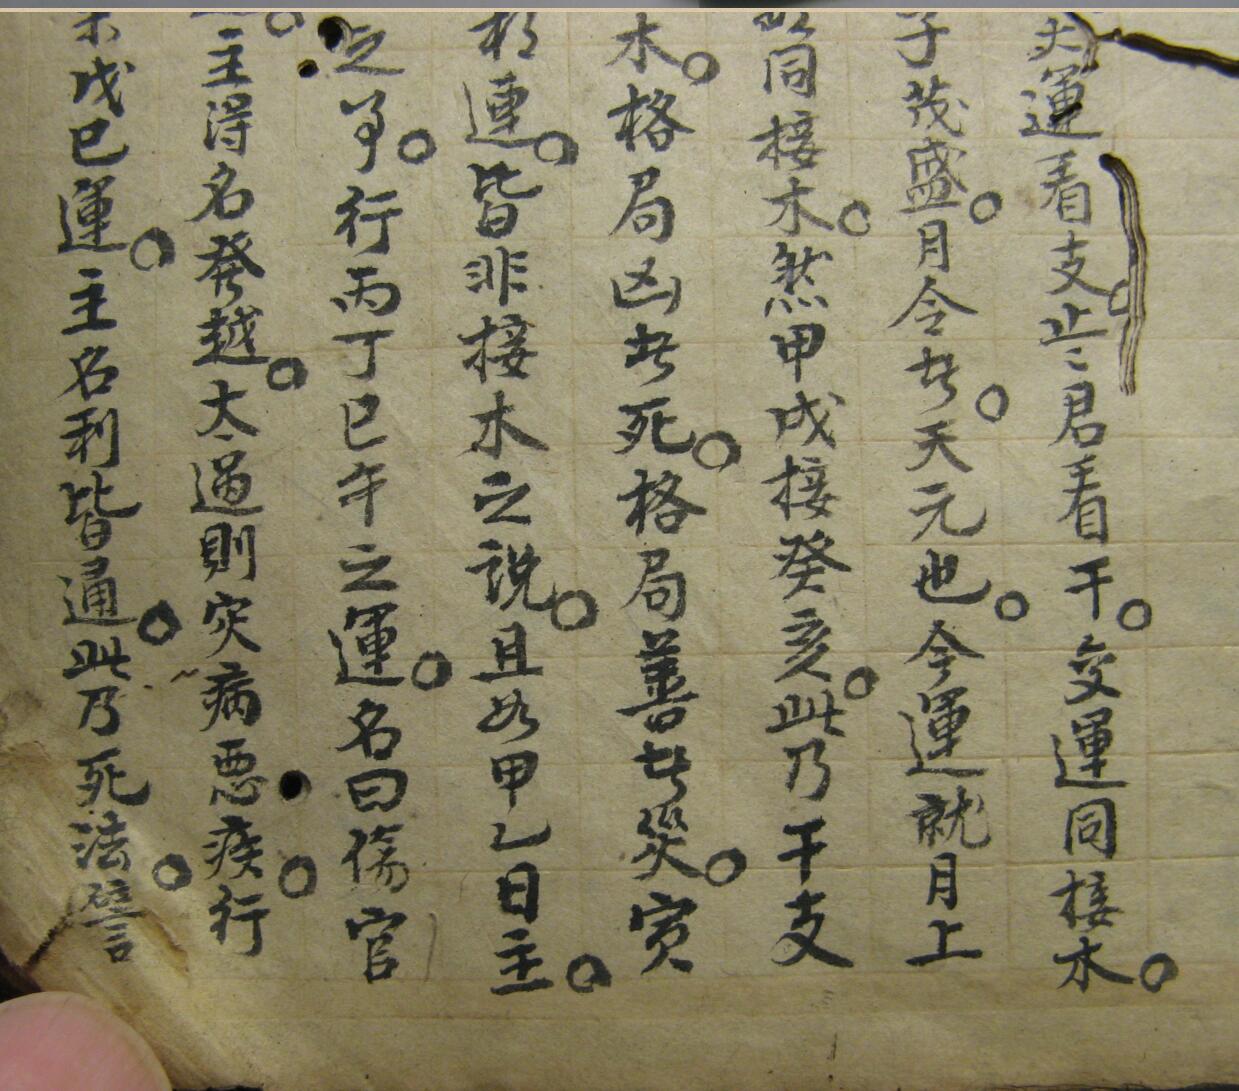 大運看支。止〻君看干。交運同接木。
子茂盛。月令者。天元也。今運就月上
同接木。然甲戌接癸亥。此乃干支
木。格局凶者死。格局善者災。寅
相連。皆非接木之說。且如甲乙日主。
之爭。行丙丁巳午之運。名曰傷官
主得名發越。大過則灾病惡疾。行
戊巳運。主名利皆通。此乃死法。譬